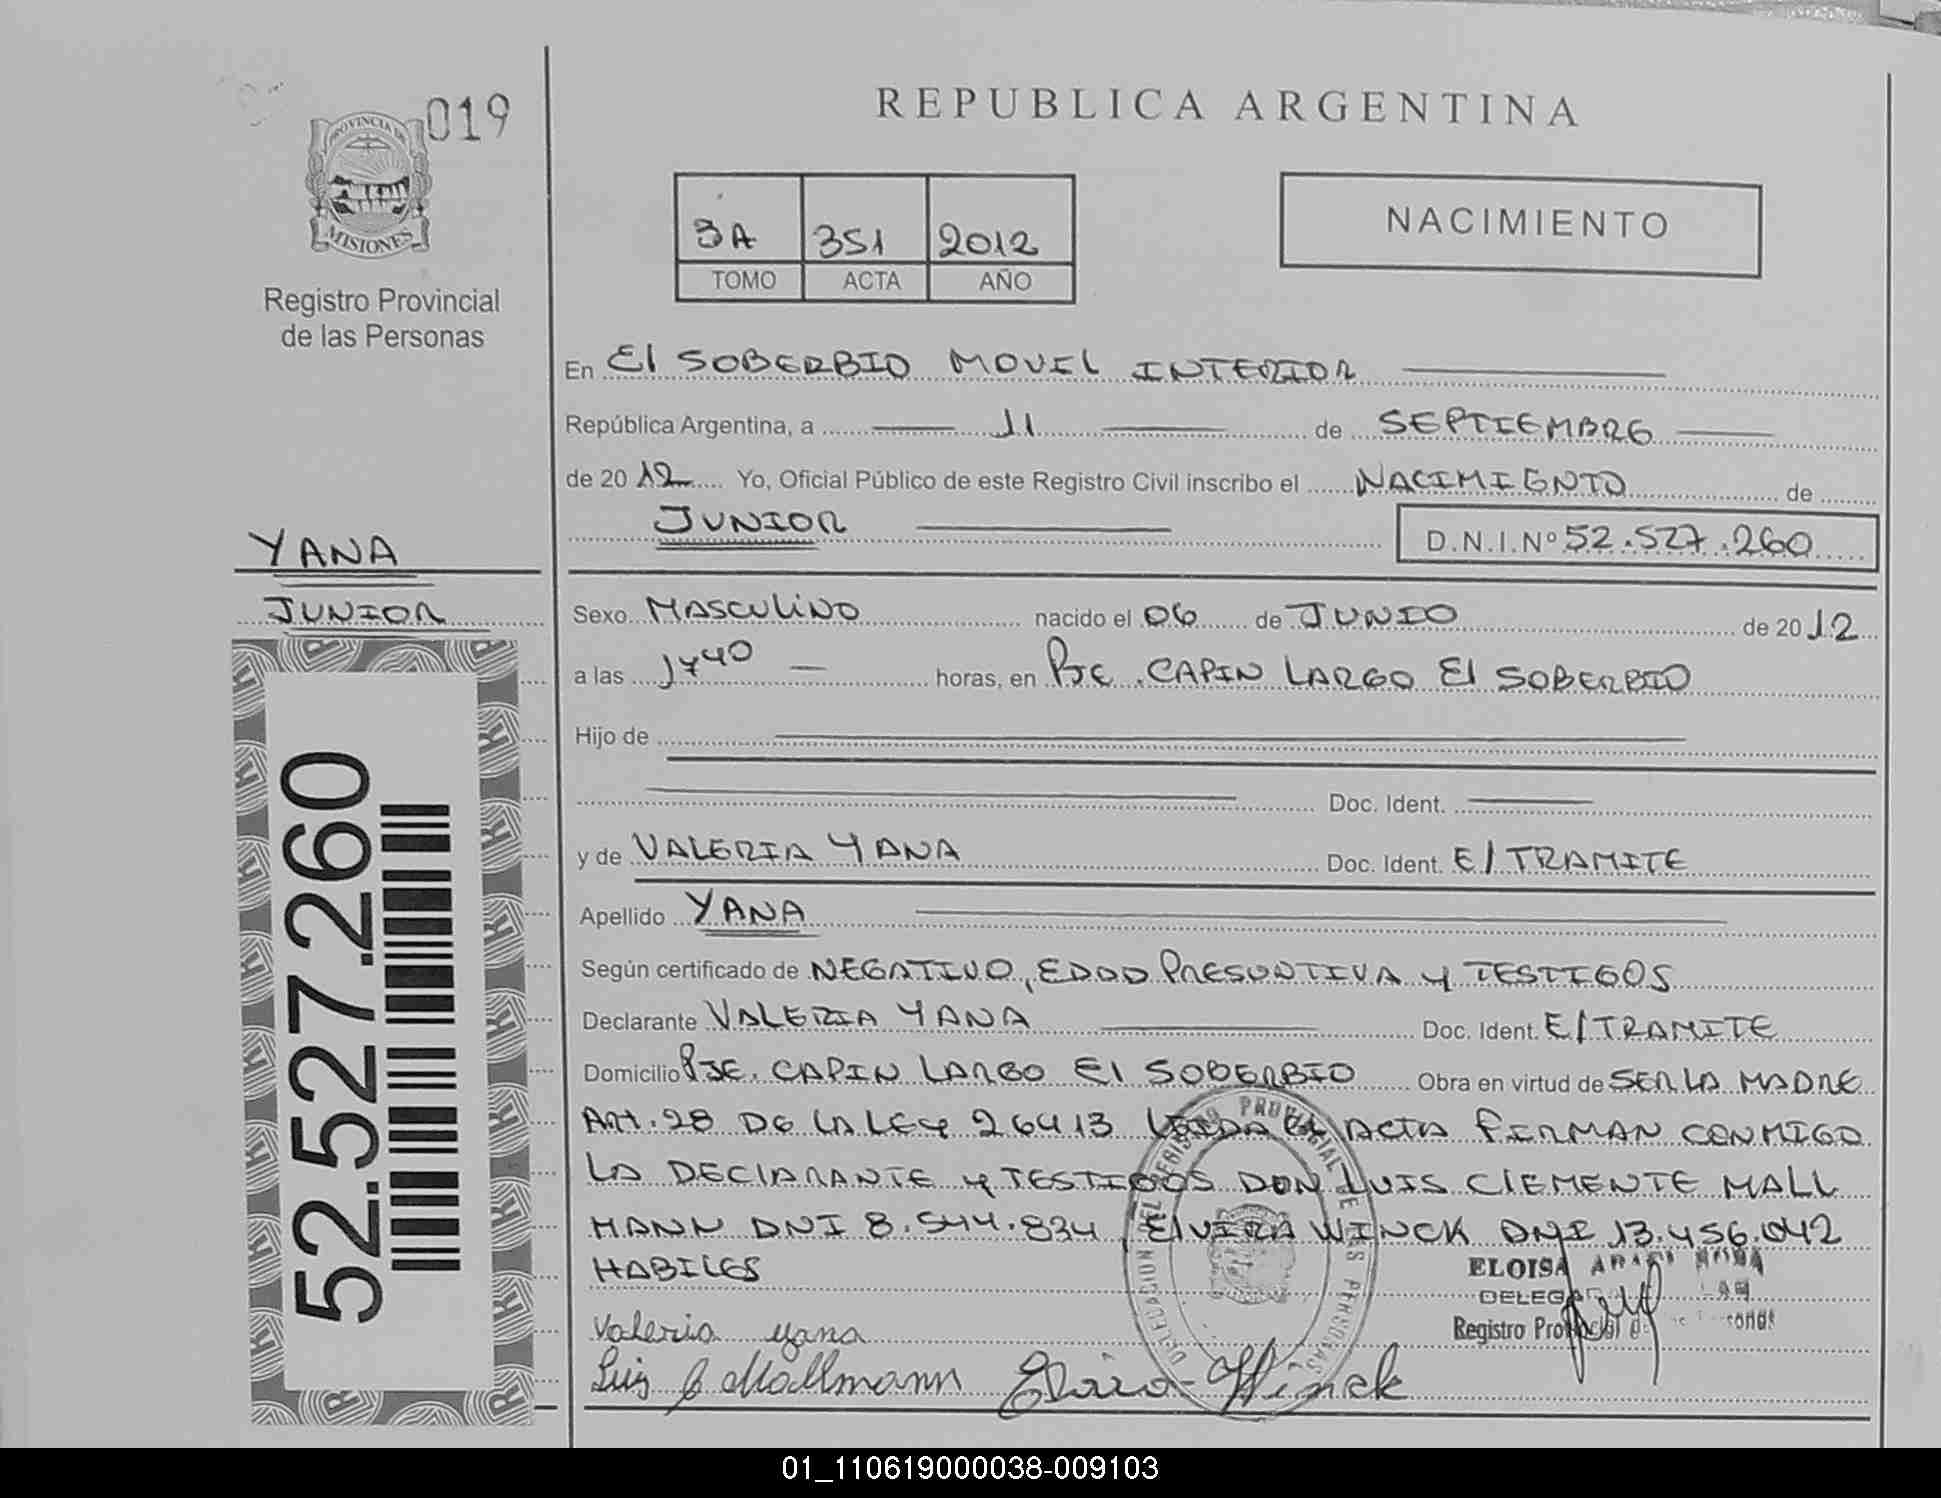 019
PROVINCIA DE
MISIONES
Registro Provincial
de las Personas
REPUBLICA ARGENTINA
3A 351 2012
TOMO ACTA AÑO
NACIMIENTO
En El SOBERBIO MOVIL INTERIOR
República Argentina, a 11 de SEPTIEMBRE
de 2012 Yo, Oficial Público de este Registro Civil inscribo el NACIMIENTO de
JUNIOR D.N.I.Nº 52.527.260
YANA
JUNIOR
52.527.260
Sexo MASCULINO nacido el 06 de JUNIO de 2012
a las 17 40 horas, en PJE. CAPIN LARGO El SOBERBIO
Hijo de
Doc. Ident.
y de VALERIA YANA Doc. Ident. E/TRAMITE
Apellido YANA
Según certificado de NEGATIVO, EDAD PRESUNTIVA Y TESTIGOS
Declarante VALERIA YANA Doc. Ident. E/TRAMITE
Domicilio PJE. CAPIN LARGO El SOBERBIO Obra en virtud de SER LA MADRE
Art. 28 DE LA LEY 26413 LEIDA EL ACTA FIRMAN CONMIGO
LA DECLARANTE Y TESTIGOS DON LUIS CLEMENTE MALL
MANN DNI 8.544.834, ElVIRA WINCK DNI 13.456.042
HABILES
ELOISA
DELEGA
Registro Provincial de
Valeria yana
Luis C Mallmann Elvira Winck
DELEGACION EL SOBERBIO PROVINCIAL DE LAS PERSONAS
01_110619000038-009103